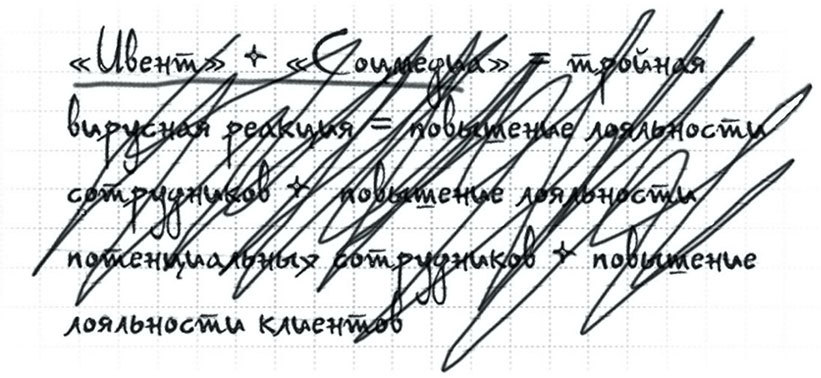 «Ивент» + «Соцмедиа» = тройная
вирусная реакция = повышение лояльности
сотрудников + повышение лояльности
потенциальных сотрудников + повышение
лояльности клиентов